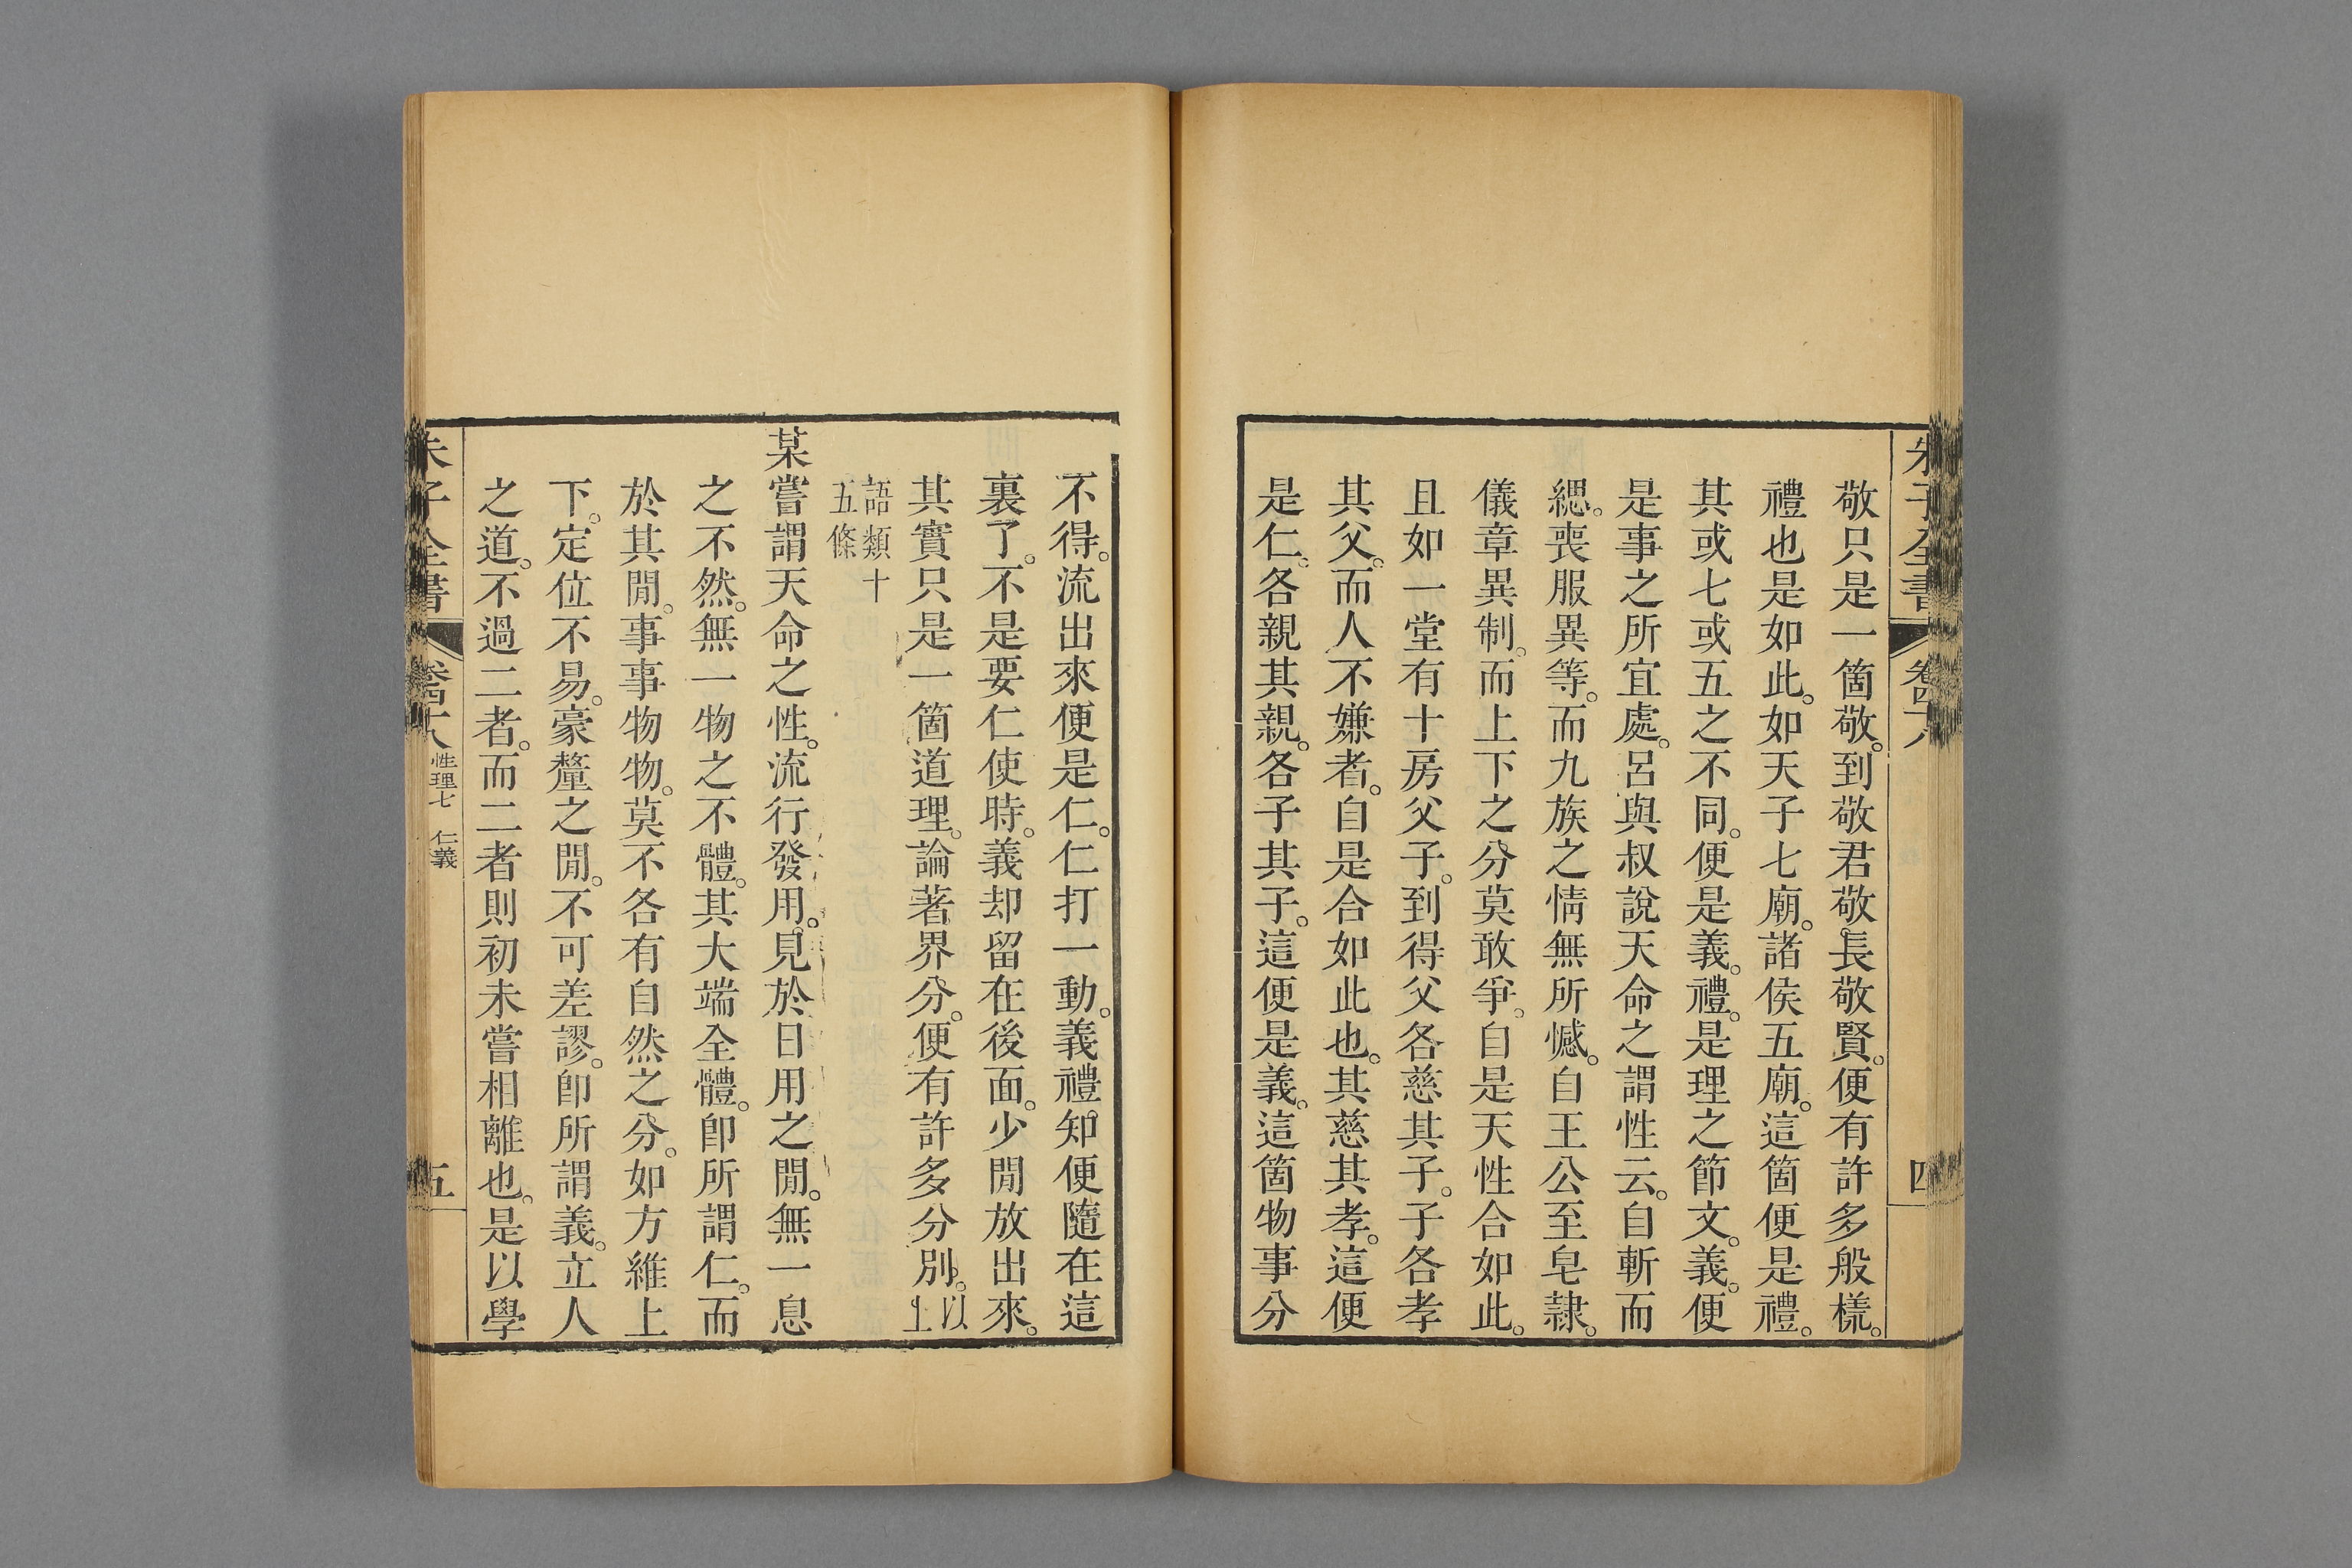 敬只是一箇敬。到敬君敬。長敬賢。便有許多般樣。
禮也是如此。如天子七廟。諸侯五廟。這箇便是禮。
其或七或五之不同。便是義。禮。是理之節文。義。便
是事之所宜處。呂與叔說天命之謂性云。自斬而
緦。喪服異等。而九族之情無所憾。自王公至皂隸。
儀章異制。而上下之分莫敢爭。自是天性合如此。
且如一堂有十房父子。到得父各慈其子。子各孝
其父。而人不嫌者。自是合如此也。其慈其孝。這便
是仁。各親其親。各子其子。這便是義。這箇物事分
不得。流出來便是仁。仁打一動。義禮知便隨在這
裏了。不是要仁使時。義却留在後面。少閒放出來。
其實只是一箇道理。論著界分。便有許多分別。以
上
語類十
五條
某嘗謂天命之性。流行發用。見於日用之閒。無一息
之不然。無一物之不體。其大端全體。卽所謂仁。而
於其閒。事事物物。莫不各有自然之分。如方維上
下。定位不易。豪釐之閒。不可差謬。卽所謂義。立人
之道。不過二者。而二者則初未嘗相離也。是以學
朱子全書
性理七 仁義
五